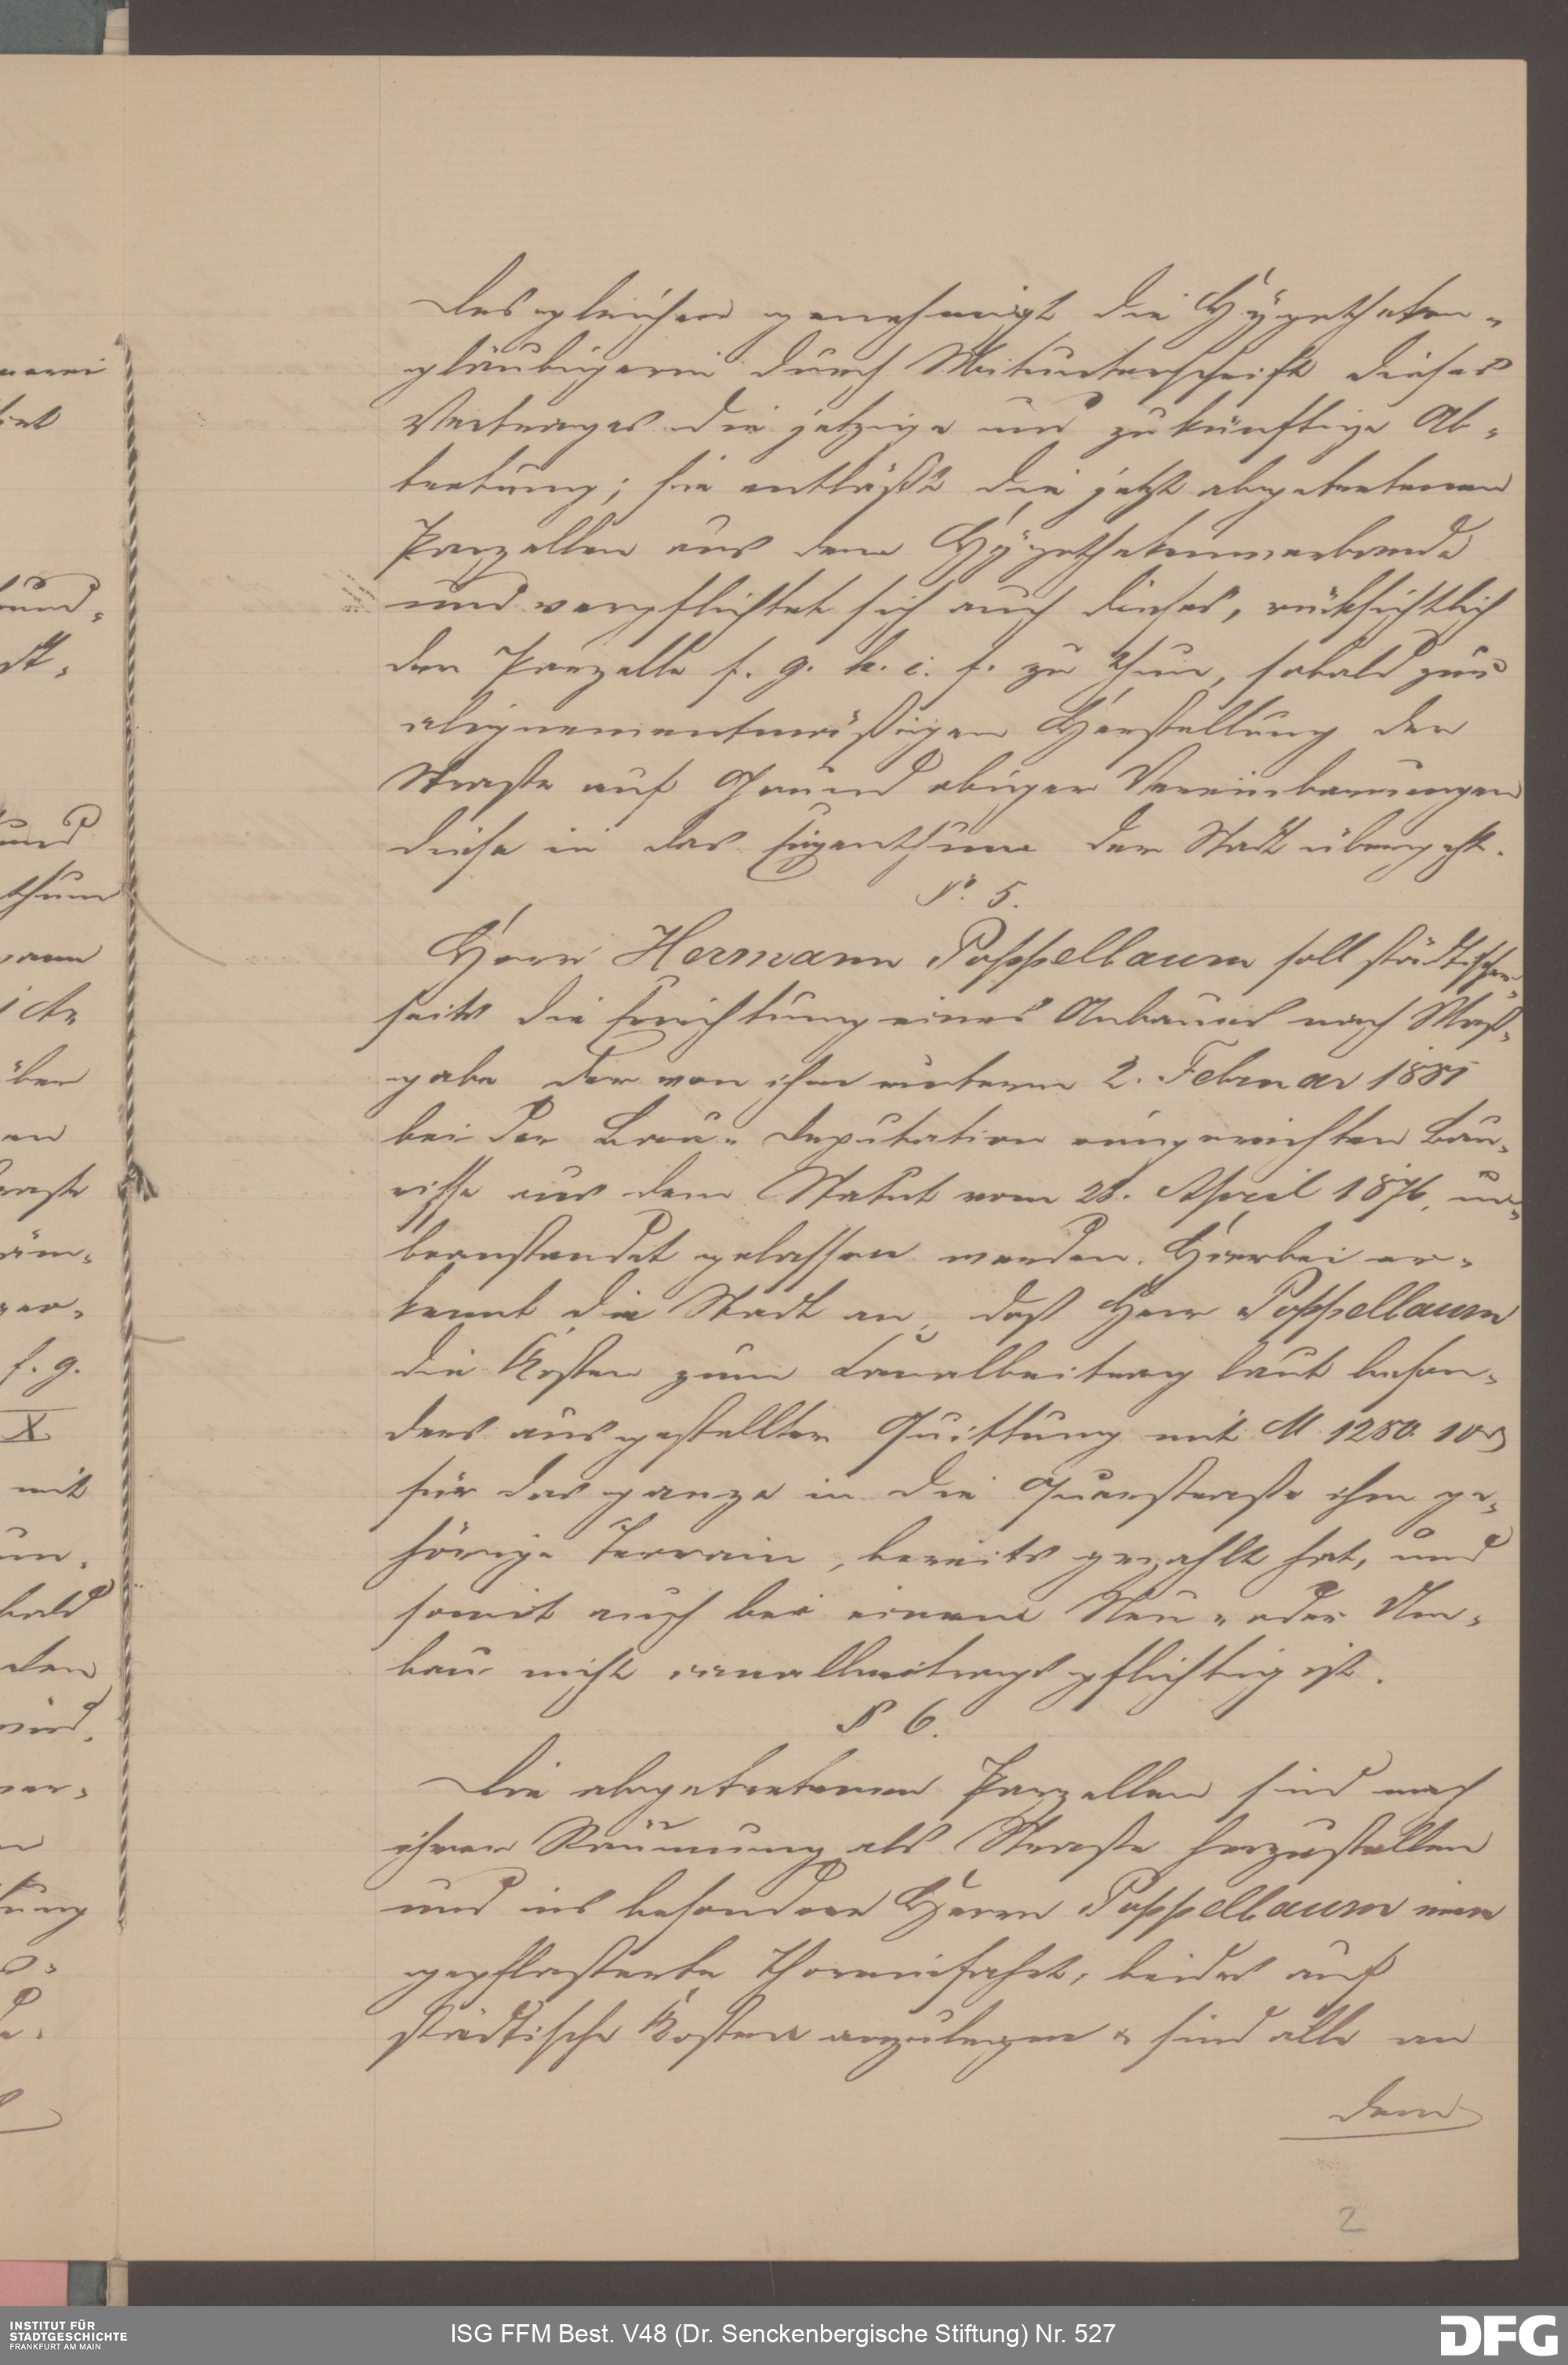 Desgleichen genehmigt die Hypotheken-
gläubigerin durch Mitunterschrift dieses
Vertrages die jetzige und zukünftige Ab-
tretung; sie entläßt die jetzt abgetretenen
Parzellen aus dem Hypothekenverbande
und verpflichtet sich auch dieses, rücksichtlich
der Parzelle f. g. h. i. f. zu thun, sobald zur
alignementmäßigen Herstellung der
Straße auf Grund obiger Vereinbarungen
diese in das Eigenthum der Stadt übergeht.
§. 5.
Herrn Hermann Poppelbaum soll städtischer-
seits die Errichtung eines Anbaues nach Maß-
gabe der von ihm unterm 2. Februar 1881
bei der Bau-Deputation eingereichten Bau-
risse aus dem Statut vom 28. April 1876, un-
beanstandet gelassen werden. Hierbei er-
kennt die Stadt an, daß Herr Poppelbaum
die Kosten zum Canalbeitrag laut beson-
ders ausgestellter Quittung mit M 1280. 10 ₰
für das ganze in die Querstraße ihm ge-
hörige Terrain, bereits gezahlt hat, und
somit auch bei einem Neu- oder Um-
bau nicht canalbeitragspflichtig ist.
§ 6.
Die abgetretenen Parzellen sind nach
ihrer Räumung als Straße herzustellen
und ins besondere Herrn Poppelbaum eine
gepflasterte Thoreinfahrt, beides auf
städtische Kosten anzulegen & sind alle an
dem
2
INSTITUT FÜR
STADTGESCHICHTE
FRANKFURT AM MAIN
ISG FFM Best. V48 (Dr. Senckenbergische Stiftung) Nr. 527
DFG